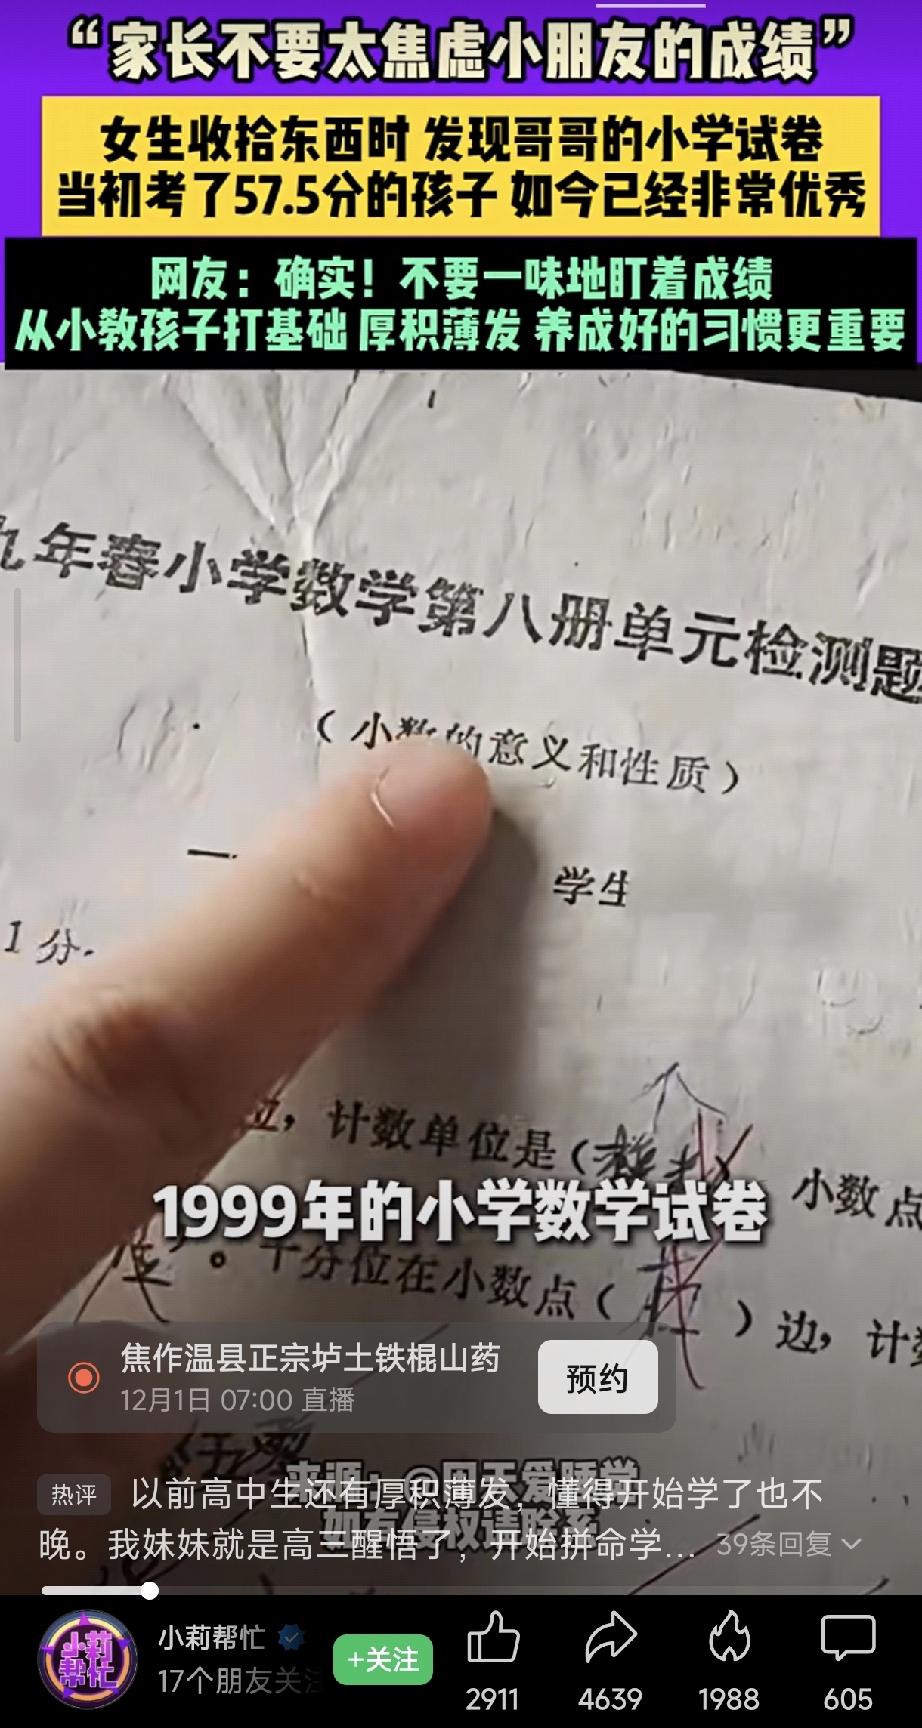 “家长不要太焦虑小朋友的成绩”
女生收拾东西时 发现哥哥的小学试卷
当初考了57.5分的孩子 如今已经非常优秀
网友：确实！不要一味地盯着成绩
从小教孩子打基础 厚积薄发 养成好的习惯更重要
九年春小学数学第八册单元检测题
（小数的意义和性质）
一
学生
1分.
位，计数单位是（
小数点
1999年的小学数学试卷
。十分位在小数点（ ）边，计
焦作温县正宗垆土铁棍山药
12月1日 07:00 直播
预约
如有侵权请联系
热评 以前高中生还有厚积薄发，懂得开始学了也不
晚。我妹妹就是高三醒悟了，开始拼命学... 39条回复
小莉帮忙
小莉帮忙
17个朋友关注
+关注
2911
4639
1988
605